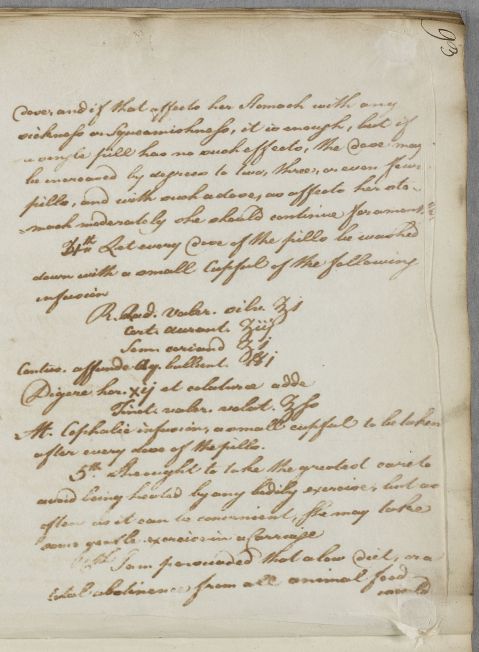 93
dose, and if that affects her stomach with any
sickness or squeamishness, it is enough, but if
a single pill has no such effects, the dose may
be increased by degrees to two, three, or even four
pills, and with such a dose, as affects her sto-
mach moderately she should continue for a month
4th Let every dose of the pills be washed
down with a small Cupful of the following
infusion
R. Rad. valer. silv. ℥j
Cort. aurant. ʒiij
Sem. coriand ʒj
Contus. affunde Aq. bullient. ℔j
Digere hor. xij et colaturæ adde
Tinct. valer. volat. ℥ss
M. Cephalic infusion, a small cupful to be taken
after every dose of the pills
5th. She ought to take the greatest care to
avoid being heated by any bodily exercise, but as
often as it can be convenient, she may take
some gentle exercise in a Carriage
I am persuaded that a low diet, or a
total abstinence from all animal food
would